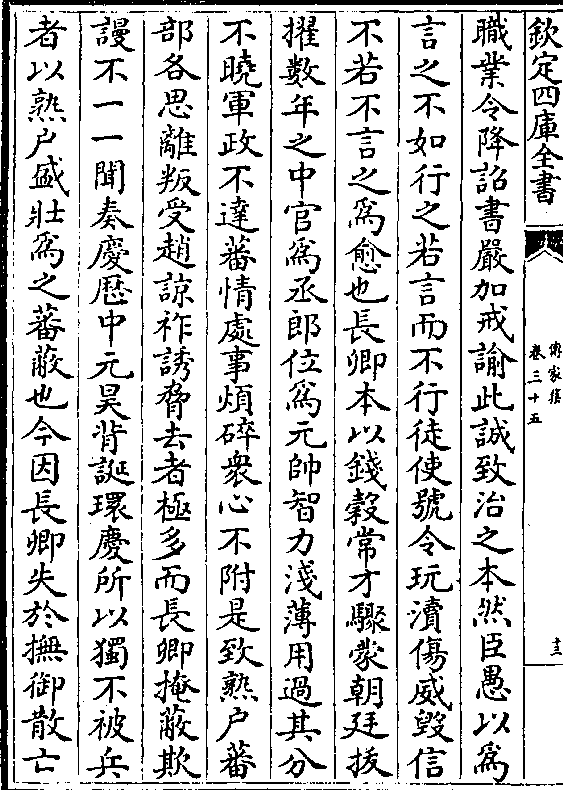 欽定四庫全書
傳家集
卷三十五
十三
職業令降詔書嚴加戒諭此誠致治之本然臣愚以為
言之不如行之若言而不行徒使號令玩瀆傷威毀信
不若不言之為愈也長卿本以錢穀常才驟蒙朝廷拔
擢數年之中官為丞郎位為元帥智力淺薄用過其分
不曉軍政不達蕃情處事煩碎衆心不附是致熟户蕃
部各思離叛受趙諒祚誘脅去者極多而長卿掩蔽欺
謾不一一聞奏慶厯中元昊背誕環慶所以獨不被兵
者以熟户盛壯為之蕃蔽也今因長卿失於撫御散亡